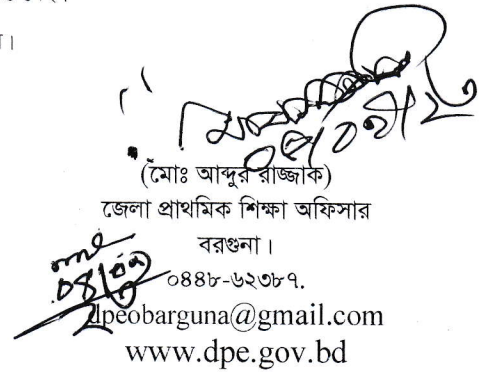 (মোঃ আব্দুর রাজ্জাক)
জেলা প্রাথমিক শিক্ষা অফিসার
বরগুনা।
০৪৪৮-৬২৩৮৭.
dpeobarguna@gmail.com
www.dpe.gov.bd